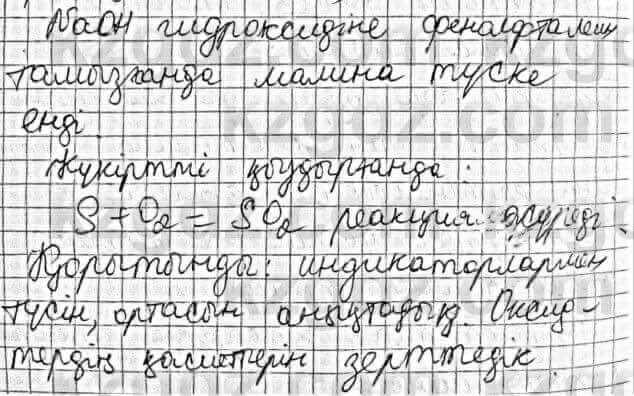 NaOH гидроксидіне фенолфталеин
тамызғанда малина түске
енді.
Күкіртті қыздырғанда:
S + O₂ = SO₂ реакция жүреді.
Қорытынды: индикаторлармен
түсін, ортасын анықтадық. Оксид-
тердің қасиеттерін зерттедік